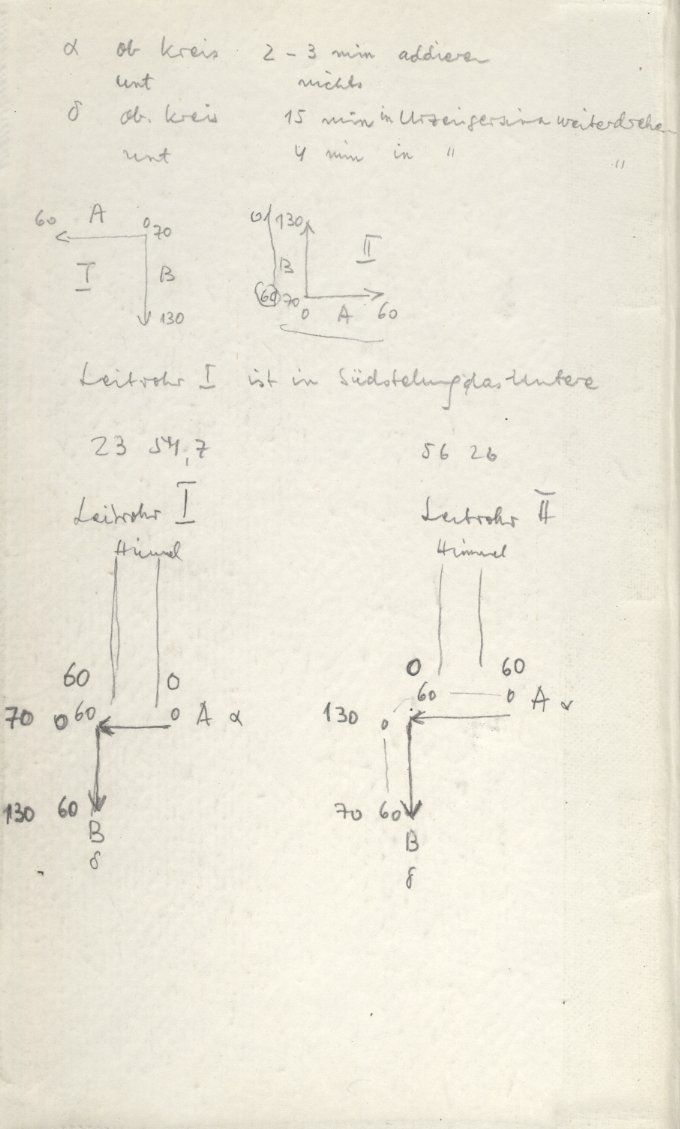 α ob Kreis 2 - 3 min addieren
unt nichts
δ ob. Kreis 15 min in Urzeigersinn weiterdrehen
unt 4 min in " "
60 A 0 70
I B
130
0 130
B II
60 70
0 A 60
Leitrohr I ist in Südstellung das Untere
23 54,7 56 26
Leitrohr I Leitrohr II
Himmel Himmel
60 0 0 60
70 0 60 0 A α 130 0 60 0 A α
130 60 70 60
B B
δ δ